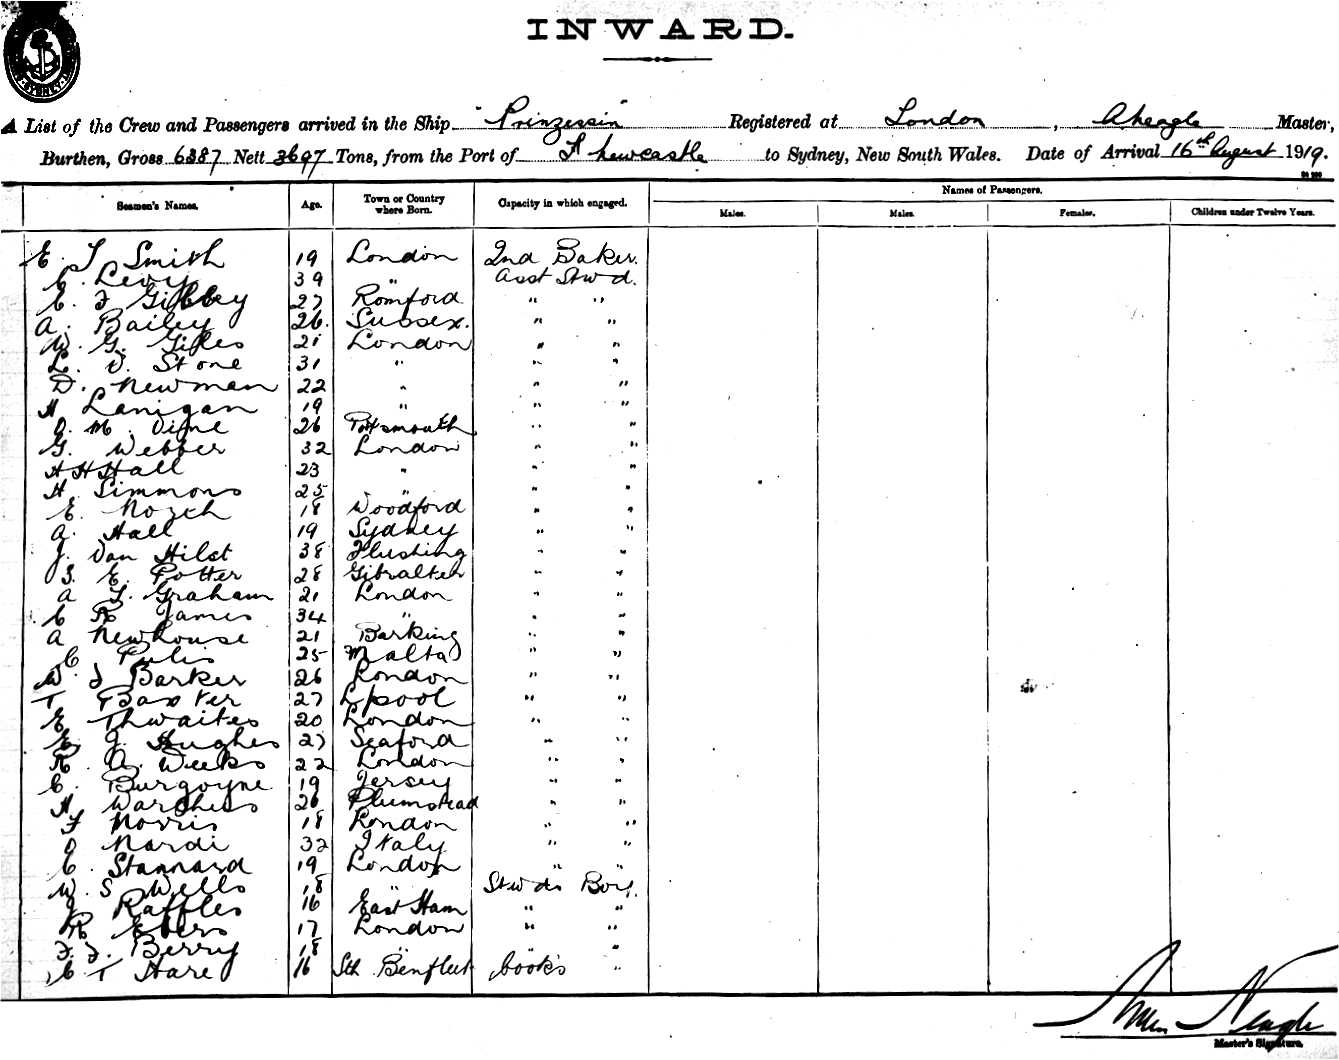 INWARD.
A List of the Crew and Passengers arrived in the Ship "Prinzessin" Registered at London, A Neagle Master,
Burthen, Gross 6387 Nett 3697 Tons, from the Port of Newcastle to Sydney, New South Wales. Date of Arrival 16th August 1919.
Names of Passengers.
Seamen's Names. Age. Town or Country where Born. Capacity in which engaged. Males. Males. Females. Children under Twelve Years.
E. J Smith 19 London 2nd Baker.
C. Levy 39 " Asst Stwd.
E. F Gibbey 27 Romford " "
A. Bailey 26. Sussex. " "
W. G. Giles 21 London " "
L. V. Stone 31 " " "
D. Newman 22 " " "
H Lanigan 19 " " "
O. M. Vigne 26 Portsmouth " "
G. Webber 32 London " "
A H Hall 23 " " "
H. Simmons 25 " " "
E. North 18 Woodford " "
A. Hall 19 Sydney " "
J. Van Hilst 38 Flushing " "
S. E. Potter 28 Gibralter " "
A J. Graham 21 London " "
C R James 34 " " "
A Newhouse 21 Barking " "
C Pulis 25 Malta " "
W. J Barker 26 London " "
T Baxter 27 Lpool " "
E Thwaites 20 London " "
E. J. Hughes 27 Seaford " "
R. A. Weeks 22 London " "
C. Burgoyne 19 Jersey " "
H. 26 Plumstead " "
F Norris 18 London " "
O Nardi 32 Italy " "
C. Stannard 19 London " "
W. S Wells 18 " Stwds Boy.
J Raffles 16 East Ham " "
R Ebers 17 London " "
F. J. Berry 18 " " "
C T Hare 16 Sth Benfleet Cooks "
Neagle
Master's Signature.